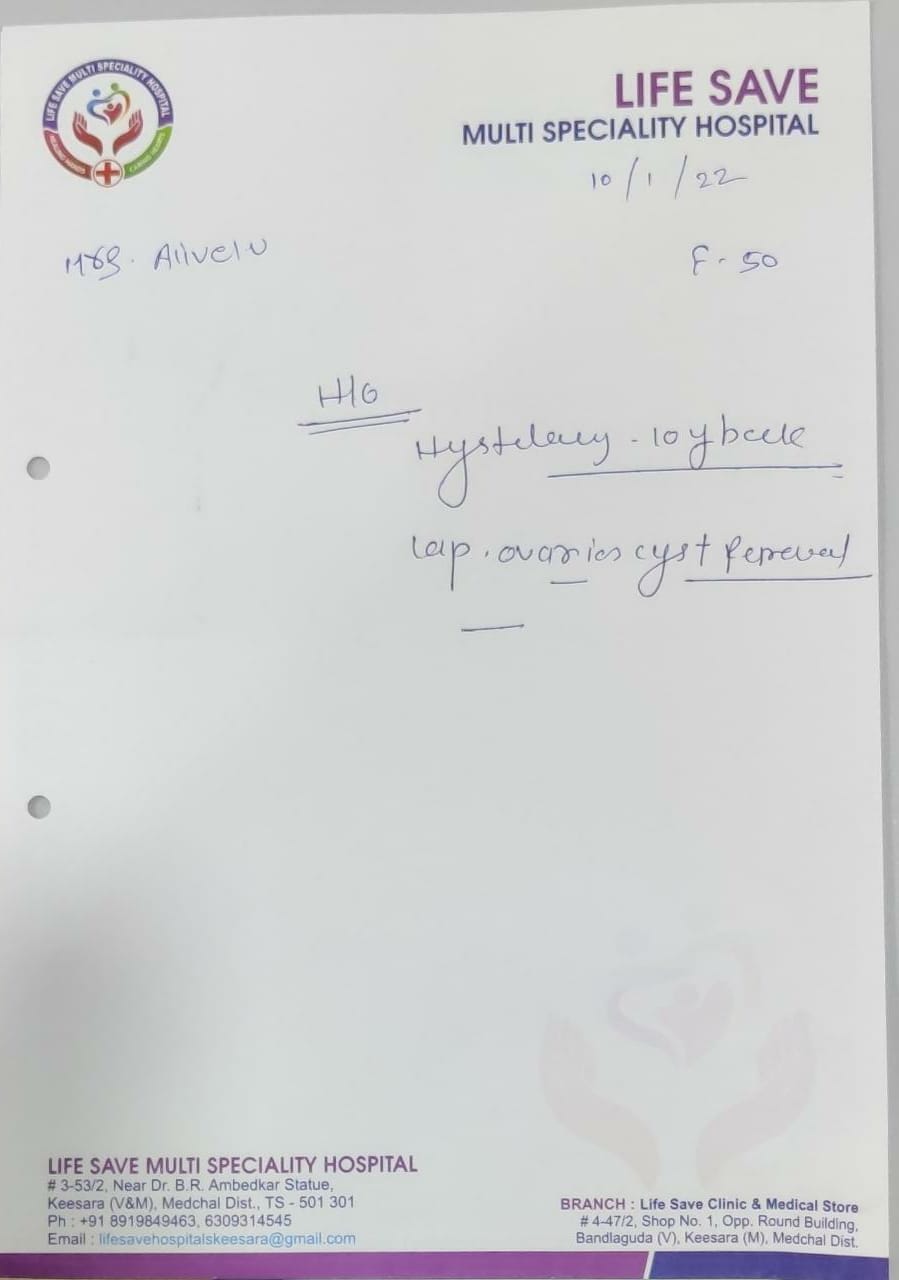 LIFE SAVE MULTI SPECIALITY HOSPITAL
HEALING HANDS CARING HEARTS
LIFE SAVE
MULTI SPECIALITY HOSPITAL
10/1/22
Mrs. Alivelu
F. 50
H/O
- 10 y back
Lap. ovaries cyst removal
LIFE SAVE MULTI SPECIALITY HOSPITAL
# 3-53/2, Near Dr. B.R. Ambedkar Statue,
Keesara (V&M), Medchal Dist., TS - 501 301
Ph : +91 8919849463, 6309314545
Email : lifesavehospitalskeesara@gmail.com
BRANCH : Life Save Clinic & Medical Store
# 4-47/2, Shop No. 1, Opp. Round Building,
Bandlaguda (V), Keesara (M), Medchal Dist.